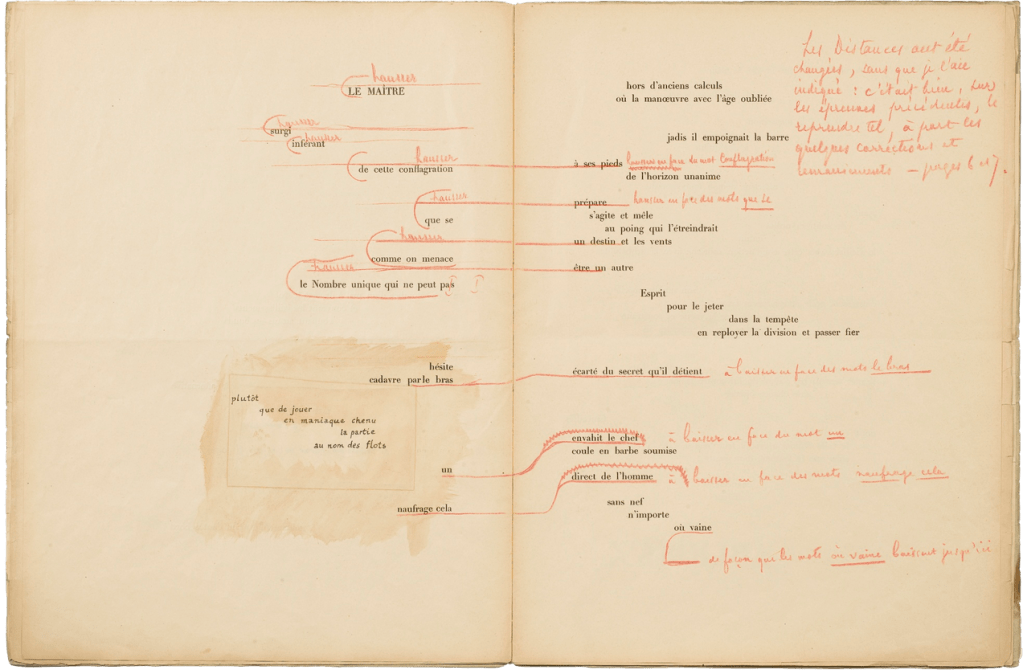 hausser
LE MAÎTRE
hausser
surgi
hausser
inférant
hausser
de cette conflagration
hausser
que se
hausser
comme on menace
hausser
le Nombre unique qui ne peut pas
hésite
cadavre par le bras
plutôt
que de jouer
en maniaque chenu
la partie
au nom des flots
un
naufrage cela
hors d'anciens calculs
où la manœuvre avec l'âge oubliée
jadis il empoignait la barre
à ses pieds hausser en face du mot Conflagration
de l'horizon unanime
prépare hausser en face des mots que se
s'agite et mêle
au poing qui l'étreindrait
un destin et les vents
être un autre
Esprit
pour le jeter
dans la tempête
en reployer la division et passer fier
écarté du secret qu'il détient à baisser en face des mots le bras
envahit le chef à baisser en face du mot un
coule en barbe soumise
direct de l'homme à baisser en face des mots naufrage cela
sans nef
n'importe
où vaine
de façon que les mots où vaine baissent jusqu'ici
Les Distances ont été
changées, sans que je l'aie
indiqué : c'était bien, sur
les épreuves précédentes, le
reprendre tel, à part les
quelques corrections et
remaniements — pages 6 et 7.